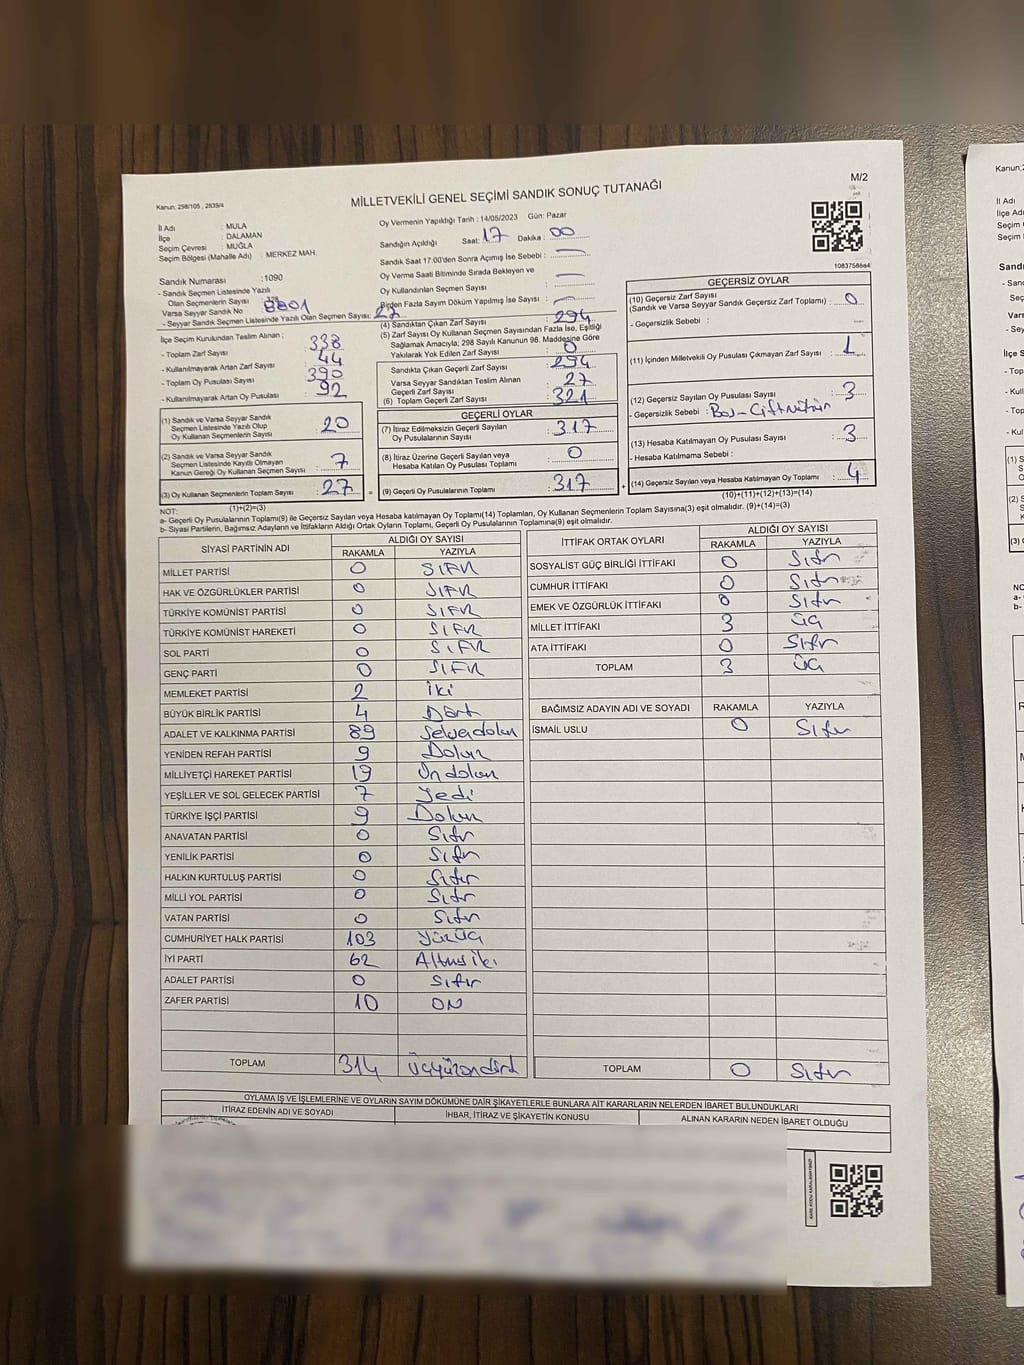 Kanun: 298/105 , 2839/4
MİLLETVEKİLİ GENEL SEÇİMİ SANDIK SONUÇ TUTANAĞI
M/2
İl Adı : MULA
İlçe : DALAMAN
Seçim Çevresi : MUĞLA
Seçim Bölgesi (Mahalle Adı) MERKEZ MAH.
Oy Vermenin Yapıldığı Tarih : 14/05/2023 Gün: Pazar
Sandığın Açıldığı Saat: 17 Dakika : 00
Sandık Saat 17:00'den Sonra Açımış İse Sebebi : —
Oy Verme Saati Bitiminde Sırada Bekleyen ve
Oy Kullandırılan Seçmen Sayısı : —
Birden Fazla Sayım Döküm Yapılmış İse Sayısı : —
Sandık Numarası : 1090
- Sandık Seçmen Listesinde Yazılı
Olan Seçmenlerin Sayısı
Varsa Seyyar Sandık No 8801
- Seyyar Sandık Seçmen Listesinde Yazılı Olan Seçmen Sayısı: 27
İlçe Seçim Kurulundan Teslim Alınan ;
- Toplam Zarf Sayısı 338
- Kullanılmayarak Artan Zarf Sayısı 44
- Toplam Oy Pusulası Sayısı 390
- Kullanılmayarak Artan Oy Pusulası 92
(1) Sandık ve Varsa Seyyar Sandık
Seçmen Listesinde Yazılı Olup
Oy Kullanan Seçmenlerin Sayısı : 20
(2) Sandık ve Varsa Seyyar Sandık
Seçmen Listesinde Kayıtlı Olmayan
Kanun Gereği Oy Kullanan Seçmen Sayısı : 7
(3) Oy Kullanan Seçmenlerin Toplam Sayısı : 27
(1)+(2)=(3)
(4) Sandıktan Çıkan Zarf Sayısı : 294
(5) Zarf Sayısı Oy Kullanan Seçmen Sayısından Fazla İse, Eşitliği
Sağlamak Amacıyla; 298 Sayılı Kanunun 98. Maddesine Göre
Yakılarak Yok Edilen Zarf Sayısı : 0
Sandıkta Çıkan Geçerli Zarf Sayısı : 294
Varsa Seyyar Sandıktan Teslim Alınan
Geçerli Zarf Sayısı : 27
(6) Toplam Geçerli Zarf Sayısı : 321
GEÇERLİ OYLAR
(7) İtiraz Edilmeksizin Geçerli Sayılan
Oy Pusulalarının Sayısı : 317
(8) İtiraz Üzerine Geçerli Sayılan veya
Hesaba Katılan Oy Pusulası Toplamı : 0
= (9) Geçerli Oy Pusulalarının Toplamı : 317 +
1083756864
GEÇERSİZ OYLAR
(10) Geçersiz Zarf Sayısı
(Sandık ve Varsa Seyyar Sandık Geçersiz Zarf Toplamı) : 0
- Geçersizlik Sebebi :
(11) İçinden Milletvekili Oy Pusulası Çıkmayan Zarf Sayısı : 1
(12) Geçersiz Sayılan Oy Pusulası Sayısı : 3
- Geçersizlik Sebebi :
(13) Hesaba Katılmayan Oy Pusulası Sayısı : 3
- Hesaba Katılmama Sebebi :
(14) Geçersiz Sayılan veya Hesaba Katılmayan Oy Toplamı : 4
(10)+(11)+(12)+(13)=(14)
NOT:
a- Geçerli Oy Pusulalarının Toplamı(9) ile Geçersiz Sayılan veya Hesaba Katılmayan Oy Toplamı(14) Toplamları, Oy Kullanan Seçmenlerin Toplam Sayısına(3) eşit olmalıdır. (9)+(14)=(3)
b- Siyasi Partilerin, Bağımsız Adayların ve İttifakların Aldığı Ortak Oyların Toplamı, Geçerli Oy Pusulalarının Toplamına(9) eşit olmalıdır.
SİYASİ PARTİNİN ADI ALDIĞI OY SAYISI
RAKAMLA YAZIYLA
MİLLET PARTİSİ 0 SIFIR
HAK VE ÖZGÜRLÜKLER PARTİSİ 0 SIFIR
TÜRKİYE KOMÜNİST PARTİSİ 0 SIFIR
TÜRKİYE KOMÜNİST HAREKETİ 0 SIFIR
SOL PARTİ 0 SIFIR
GENÇ PARTİ 0 SIFIR
MEMLEKET PARTİSİ 2 iki
BÜYÜK BİRLİK PARTİSİ 4 Dört
ADALET VE KALKINMA PARTİSİ 89 Seksendokuz
YENİDEN REFAH PARTİSİ 9 Dokuz
MİLLİYETÇİ HAREKET PARTİSİ 19 Ondokuz
YEŞİLLER VE SOL GELECEK PARTİSİ 7 Yedi
TÜRKİYE İŞÇİ PARTİSİ 9 Dokuz
ANAVATAN PARTİSİ 0 Sıfır
YENİLİK PARTİSİ 0 Sıfır
HALKIN KURTULUŞ PARTİSİ 0 Sıfır
MİLLİ YOL PARTİSİ 0 Sıfır
VATAN PARTİSİ 0 Sıfır
CUMHURİYET HALK PARTİSİ 103 Yüzüç
İYİ PARTİ 62 Altmışiki
ADALET PARTİSİ 0 Sıfır
ZAFER PARTİSİ 10 ON
TOPLAM 314 Üçyüzondört
İTTİFAK ORTAK OYLARI ALDIĞI OY SAYISI
RAKAMLA YAZIYLA
SOSYALİST GÜÇ BİRLİĞİ İTTİFAKI 0 Sıfır
CUMHUR İTTİFAKI 0 Sıfır
EMEK VE ÖZGÜRLÜK İTTİFAKI 0 Sıfır
MİLLET İTTİFAKI 3 üç
ATA İTTİFAKI 0 Sıfır
TOPLAM 3 üç
BAĞIMSIZ ADAYIN ADI VE SOYADI RAKAMLA YAZIYLA
İSMAİL USLU 0 Sıfır
TOPLAM 0 Sıfır
OYLAMA İŞ VE İŞLEMLERİNE VE OYLARIN SAYIM DÖKÜMÜNE DAİR ŞİKAYETLERLE BUNLARA AİT KARARLARIN NELERDEN İBARET BULUNDUKLARI
İTİRAZ EDENİN ADI VE SOYADI İHBAR, İTİRAZ VE ŞİKAYETİN KONUSU ALINAN KARARIN NEDEN İBARET OLDUĞU
Kanun:
İl Adı
İlçe
Seçim
Seçim